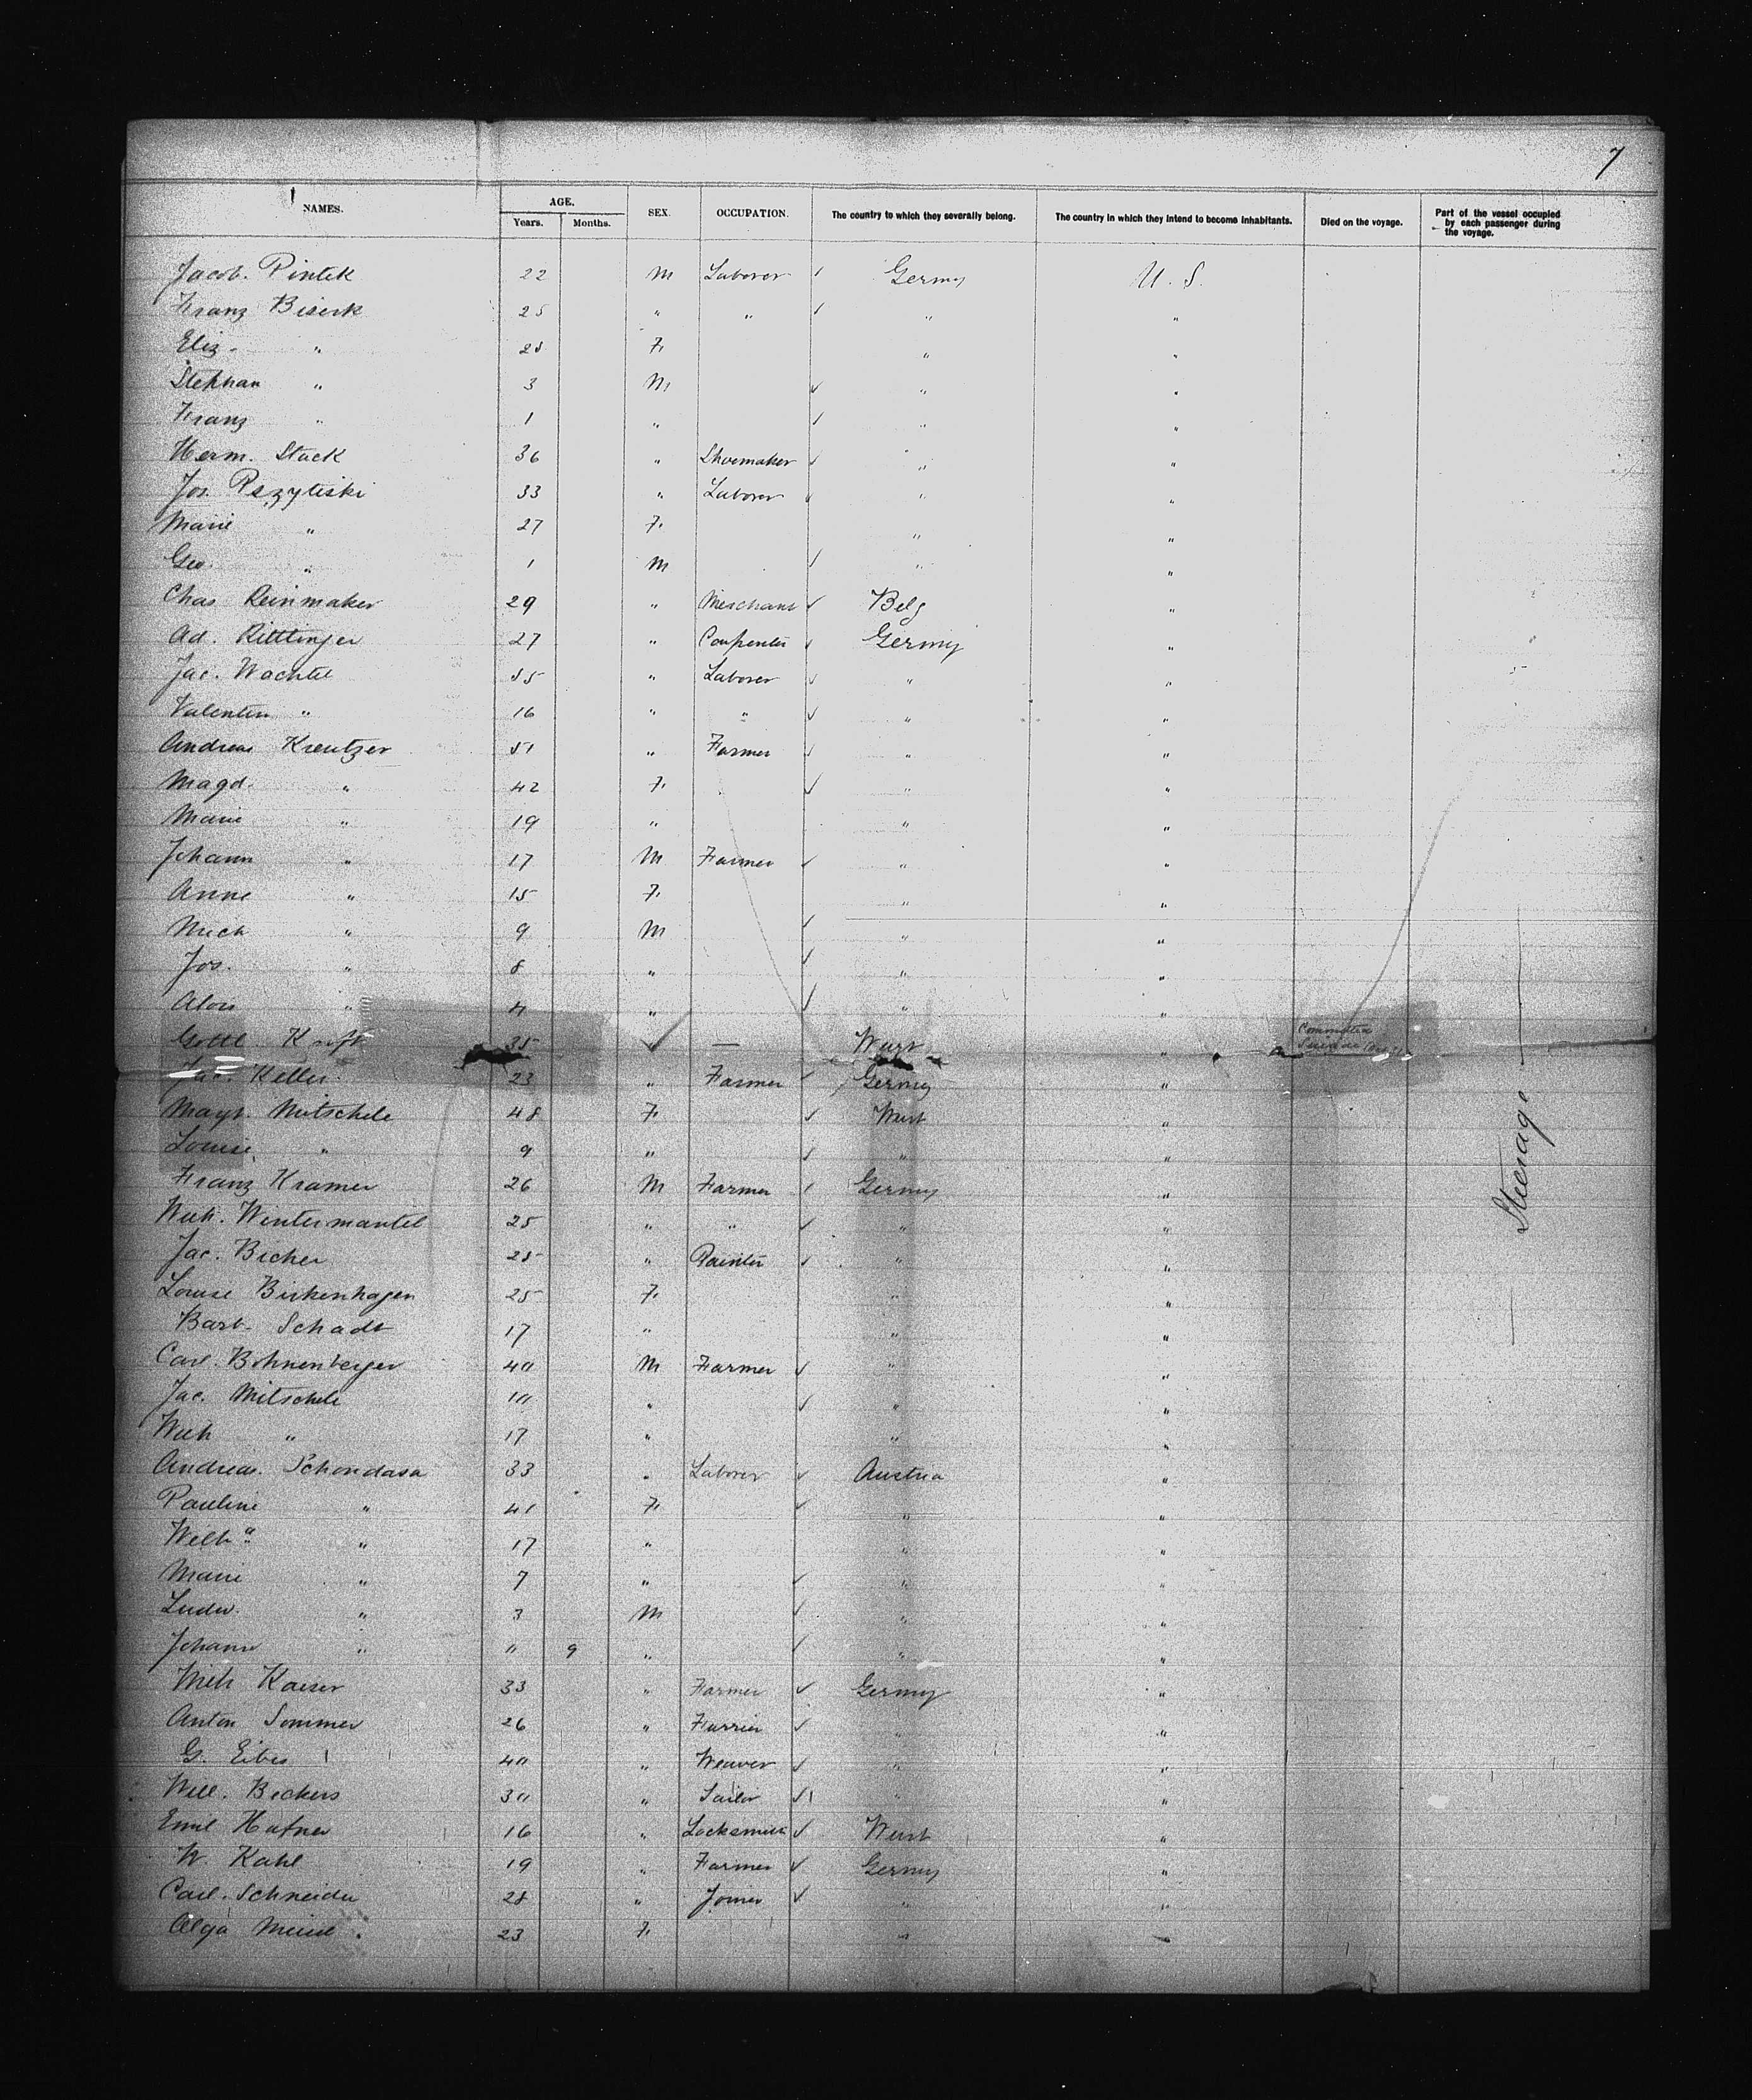 7
NAMES. AGE. Years. Months. SEX. OCCUPATION. The country to which they severally belong. The country in which they intend to become inhabitants. Died on the voyage. Part of the vessel occupied by each passenger during the voyage.
Jacob. Pintek 22 M Laborer ✓ Germy U. S.
Franz Biserk 25 " " ✓ " "
Eliz. " 28 F. " "
Stephan " 3 M ✓ " "
Franz " 1 " ✓ " "
Herm. Stack 36 " Shoemaker ✓ " "
Jos. Pszytiski 33 " Laborer ✓ " "
Marie " 27 F. " "
Geo. " 1 M ✓ " "
Chas Reinmaker 29 " Merchant ✓ Belg "
Ad. Rittinger 27 " Carpenter ✓ Germy "
Jac. Wachtel 55 " Laborer ✓ " "
Valentin " 16 " " ✓ " "
Andreas Kreutzer 51 " Farmer ✓ " "
Magd. " 42 F. ✓ " "
Marie " 19 " " "
Johann " 17 M Farmer ✓ " "
Anne " 15 F. " "
Mich " 9 M ✓ " "
Jos. " 8 " ✓ " "
Alois " 4 " ✓ " "
Gottl. 35 — Wurt "
Jac. Keller 23 " Farmer ✓ Germy "
Magt. Mitschele 48 F. ✓ Wurt "
Louise " 9 " ✓ " "
Franz Kramer 26 M Farmer ✓ Germy "
Wilh. Wintermantel 25 " " ✓ " "
Jac. Bicher 25 " Painter ✓ " "
Louise Birkenhagen 25 F. " "
Barb. Schadt 17 " " "
Carl. Bohnenberger 40 M Farmer ✓ " "
Jac. Mitschele " ✓ " "
Wilh " 17 " " "
Andreas. Schondasa 33 " Laborer ✓ Austria "
Pauline " 41 F. ✓ " "
Wilh.a " 17 " " "
Marie " 7 " ✓ " "
Ludw. " 3 M ✓ " "
Johann " " 9 " ✓ " "
Mich Kaiser 33 " Farmer ✓ Germy "
Anton Sommer 26 " Furrier ✓ " "
G. Eibes 40 " Weaver ✓ " "
Will. Beckers 30 " Tailor ✓ " "
Emil Hafner 16 " Locksmith ✓ Wurt "
W. Kahl 19 " Farmer ✓ Germy "
Carl. Schneider 28 " Joiner ✓ " "
Olga 23 F. " "
Steerage